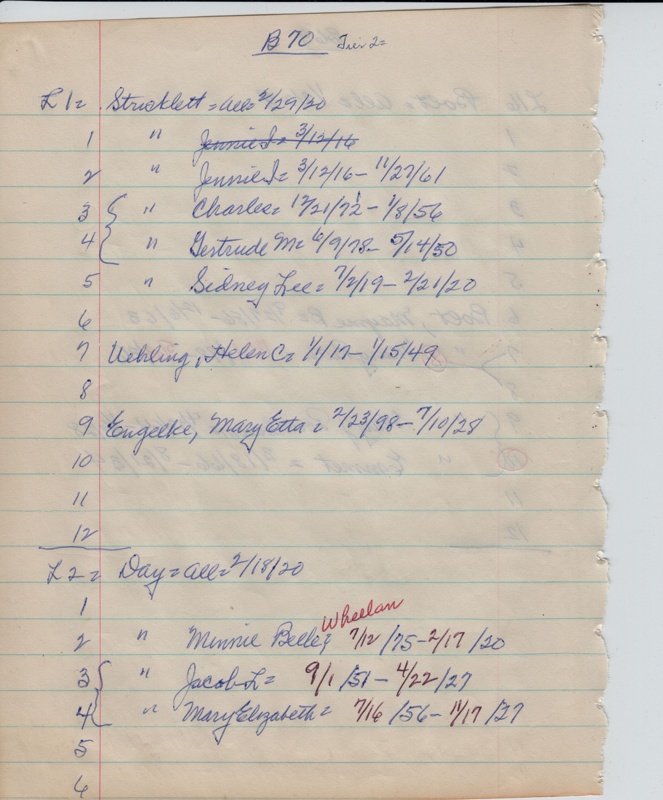 B 70 Tier 2=
L 1= Stricklett = all = 2/29/20
1 " Jennie I = 3/12/16
2 " Jennie I = 3/12/16 - 11/27/61
3 " Charles = 12/21/72 - 1/8/56
4 " Gertrude M = 6/9/78 - 5/14/50
5 " Sidney Lee = 7/2/19 - 2/21/20
6
7 Uehling, Helen C = 1/1/17 - 1/15/49
8
9 Engelke, Mary Etta = 2/23/98 - 7/10/28
10
11
12
L 2 = Day = all = 2/18/20
1
Wheelan
2 " Minnie Belle = 7/12/75 - 2/17/20
3 " Jacob L = 9/1/51 - 4/22/27
4 " Mary Elizabeth = 7/16/56 - 11/17/37
5
6